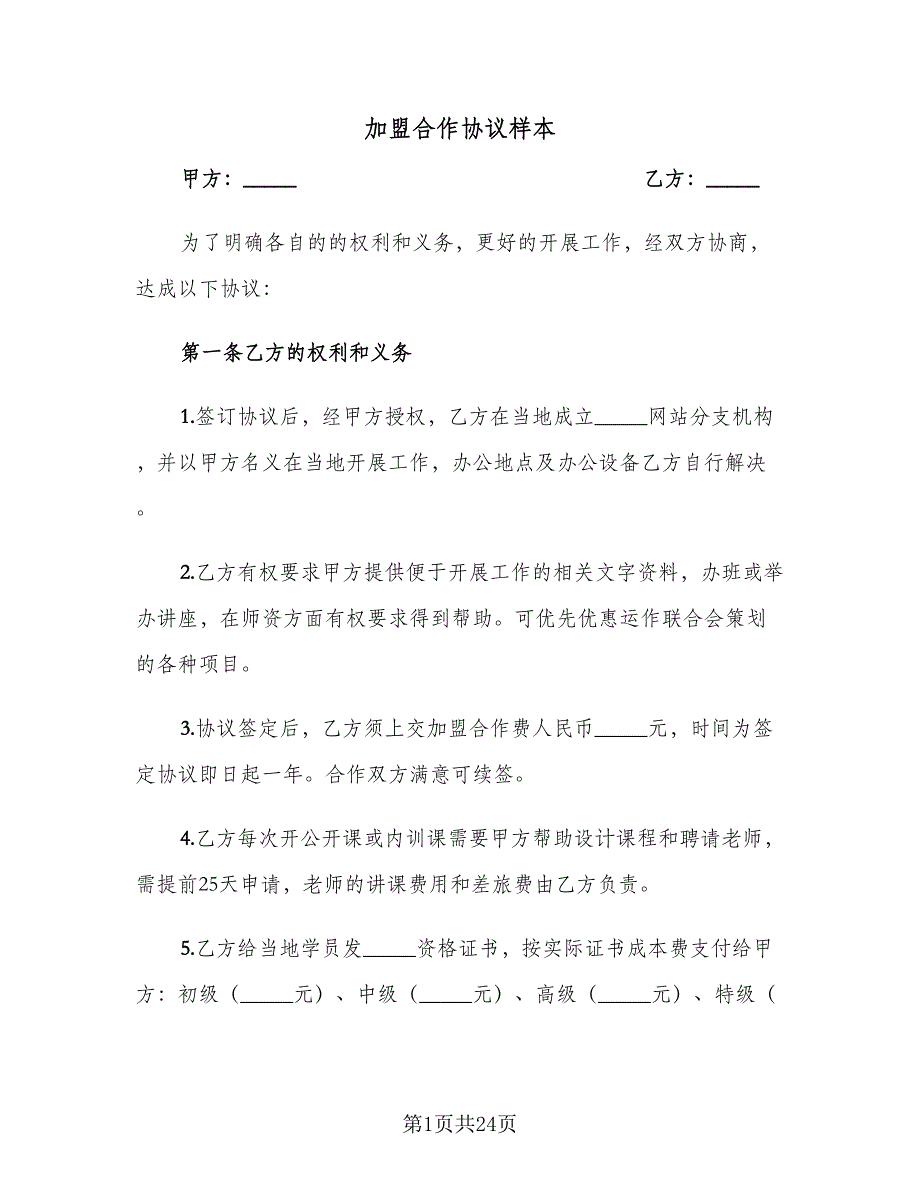 加盟合作协议样本
甲方：_____ 乙方：_____
为了明确各自的的权利和义务，更好的开展工作，经双方协商，
达成以下协议：
第一条乙方的权利和义务
1.签订协议后，经甲方授权，乙方在当地成立_____网站分支机构
，并以甲方名义在当地开展工作，办公地点及办公设备乙方自行解决
。
2.乙方有权要求甲方提供便于开展工作的相关文字资料，办班或举
办讲座，在师资方面有权要求得到帮助。可优先优惠运作联合会策划
的各种项目。
3.协议签定后，乙方须上交加盟合作费人民币_____元，时间为签
定协议即日起一年。合作双方满意可续签。
4.乙方每次开公开课或内训课需要甲方帮助设计课程和聘请老师，
需提前25天申请，老师的讲课费用和差旅费由乙方负责。
5.乙方给当地学员发_____资格证书，按实际证书成本费支付给甲
方：初级（_____元）、中级（_____元）、高级（_____元）、特级（
第1页共24页